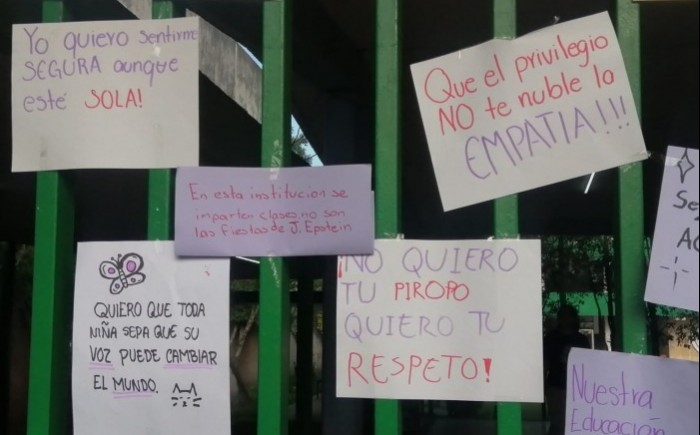 Yo quiero sentirme
SEGURA aunque
esté SOLA!
Que el privilegio
NO te nuble la
EMPATIA!!!
En esta institucion se
imparten clases no son
las fiestas de J. Epstein
QUIERO QUE TODA
NIÑA SEPA QUE SU
VOZ PUEDE CAMBIAR
EL MUNDO.
¡NO QUIERO
TU PIROPO
QUIERO TU
RESPETO!
Nuestra
Educación